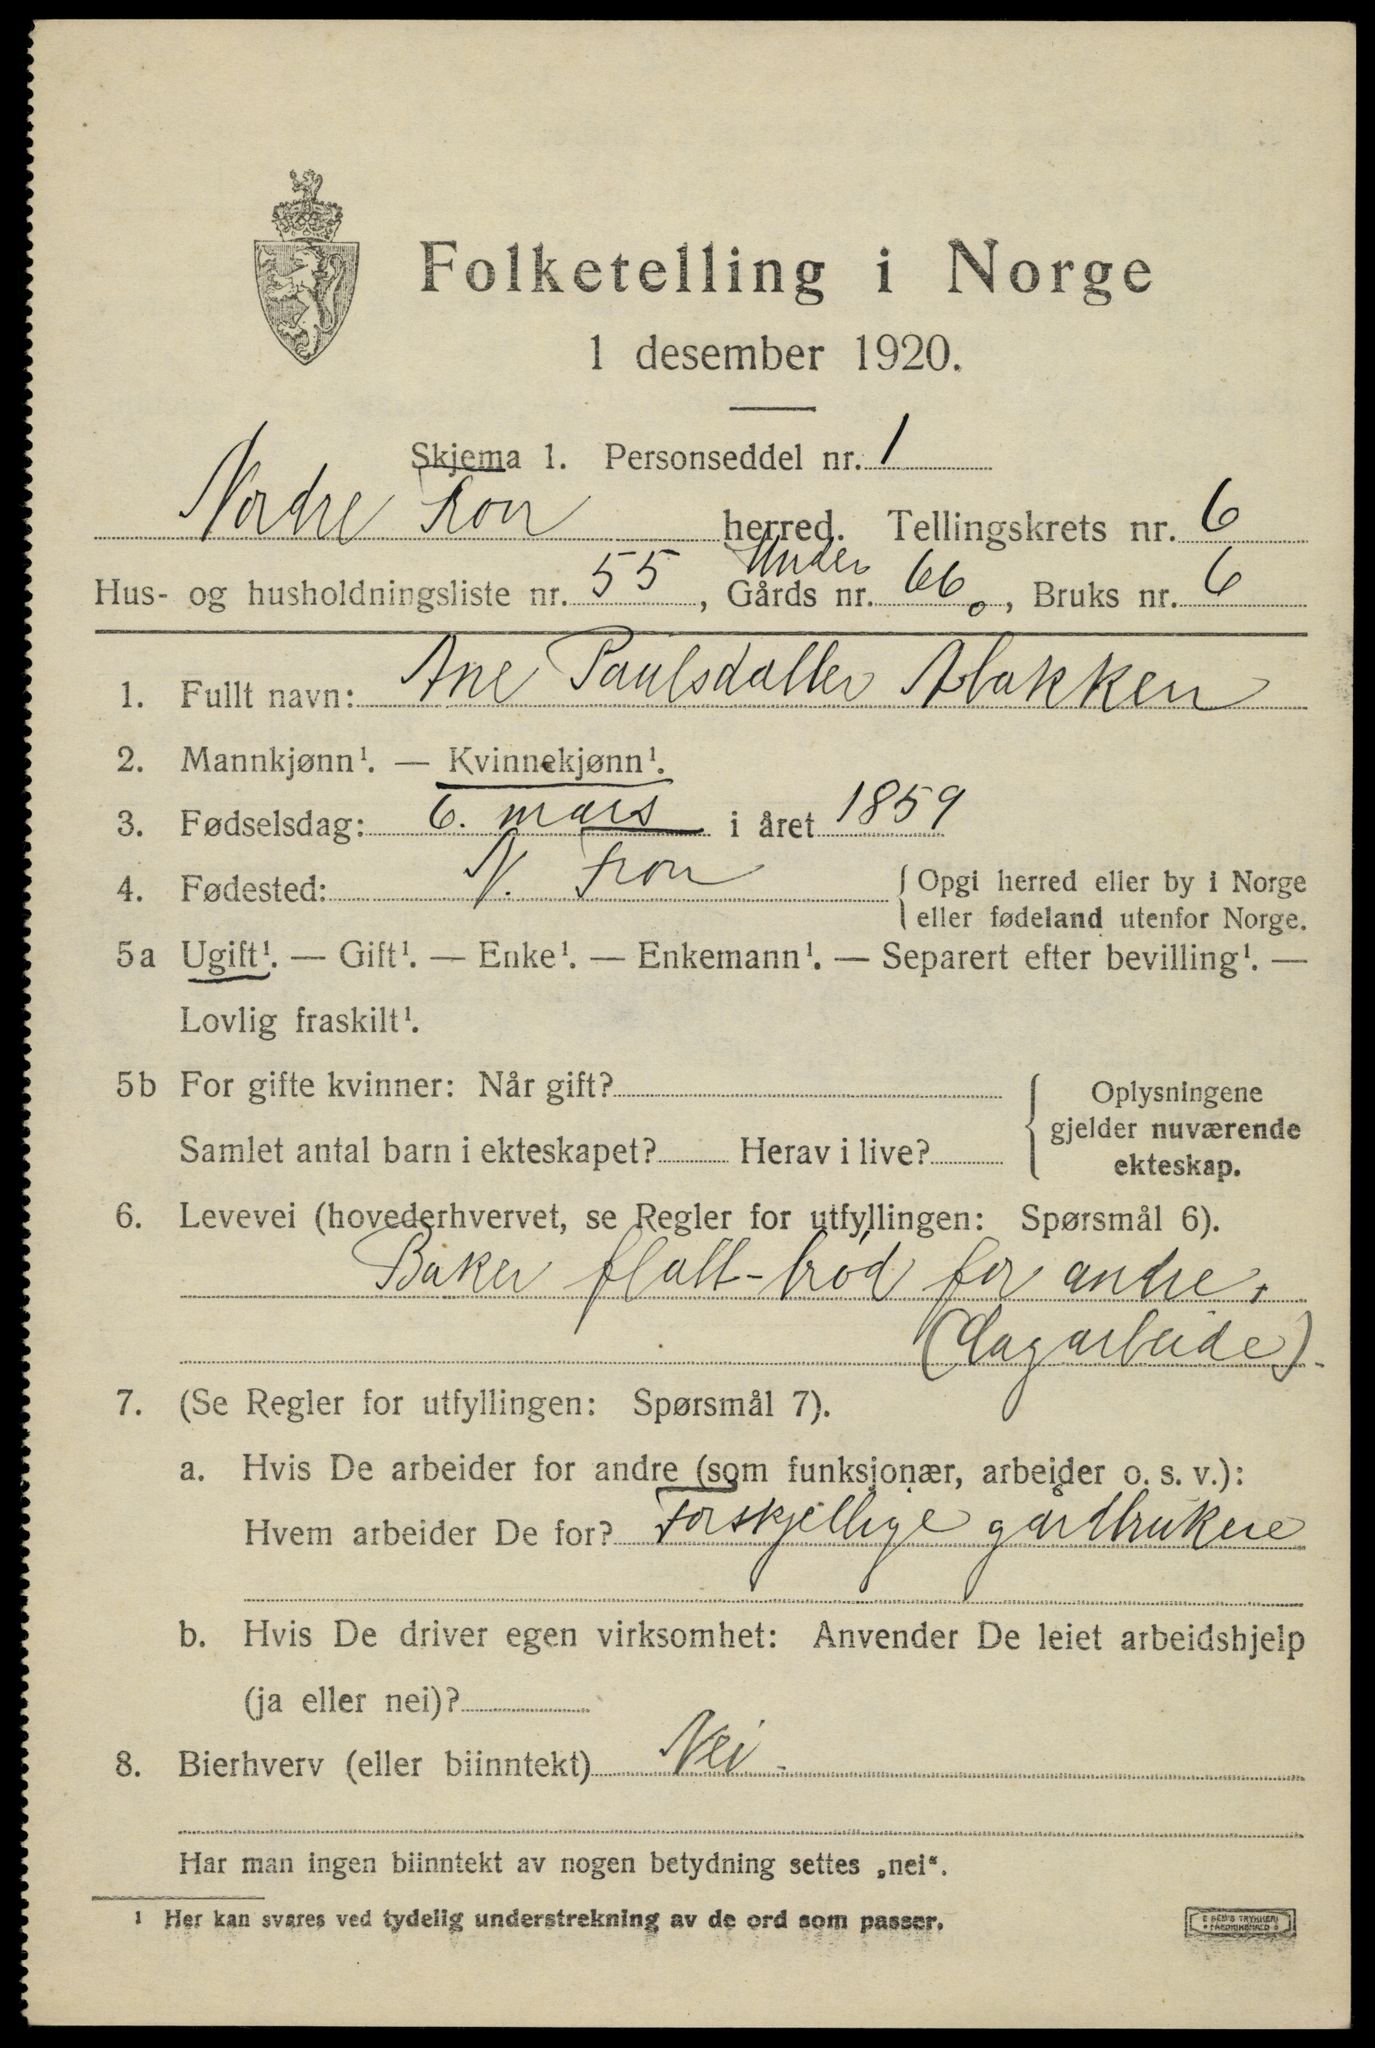 Folketelling i Norge
1 desember 1920.
Skjema 1. Personseddel nr. 1
Nordre Fron herred. Tellingskrets nr. 6
Under
Hus- og husholdningsliste nr. 55, Gårds nr. 66, Bruks nr. 6
1. Fullt navn: Ane Paulsdatter
2. Mannkjønn¹. — Kvinnekjønn¹.
3. Fødselsdag: 6. mars i året 1859
4. Fødested: N. Fron { Opgi herred eller by i Norge
eller fødeland utenfor Norge.
5a Ugift¹. — Gift¹. — Enke¹. — Enkemann¹. — Separert efter bevilling¹. —
Lovlig fraskilt¹.
5b For gifte kvinner: Når gift?
Samlet antal barn i ekteskapet? Herav i live?
{ Oplysningene
gjelder nuværende
ekteskap.
6. Levevei (hovederhvervet, se Regler for utfyllingen: Spørsmål 6).
Baker flatt-brød for andre.
(dagarbeide).
7. (Se Regler for utfyllingen: Spørsmål 7).
a. Hvis De arbeider for andre (som funksjonær, arbeider o. s. v.):
Hvem arbeider De for? Forskjellige gårdbrukere
b. Hvis De driver egen virksomhet: Anvender De leiet arbeidshjelp
(ja eller nei)?
8. Bierhverv (eller biinntekt) Nei.
Har man ingen biinntekt av nogen betydning settes „nei“.
¹ Her kan svares ved tydelig understrekning av de ord som passer.